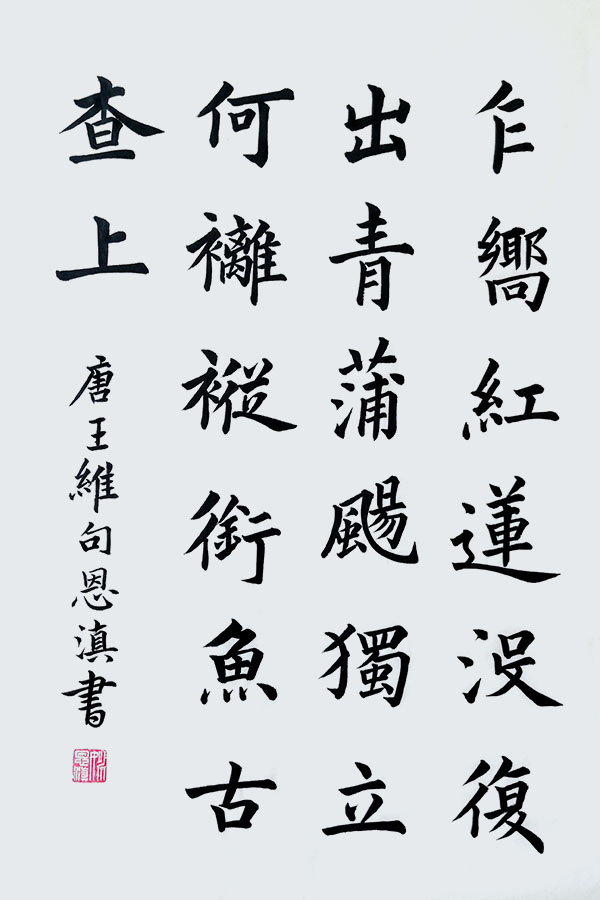 乍嚮紅蓮没復
出青蒲颺獨立
何褵褷銜魚古
查上
唐王維句恩滇書